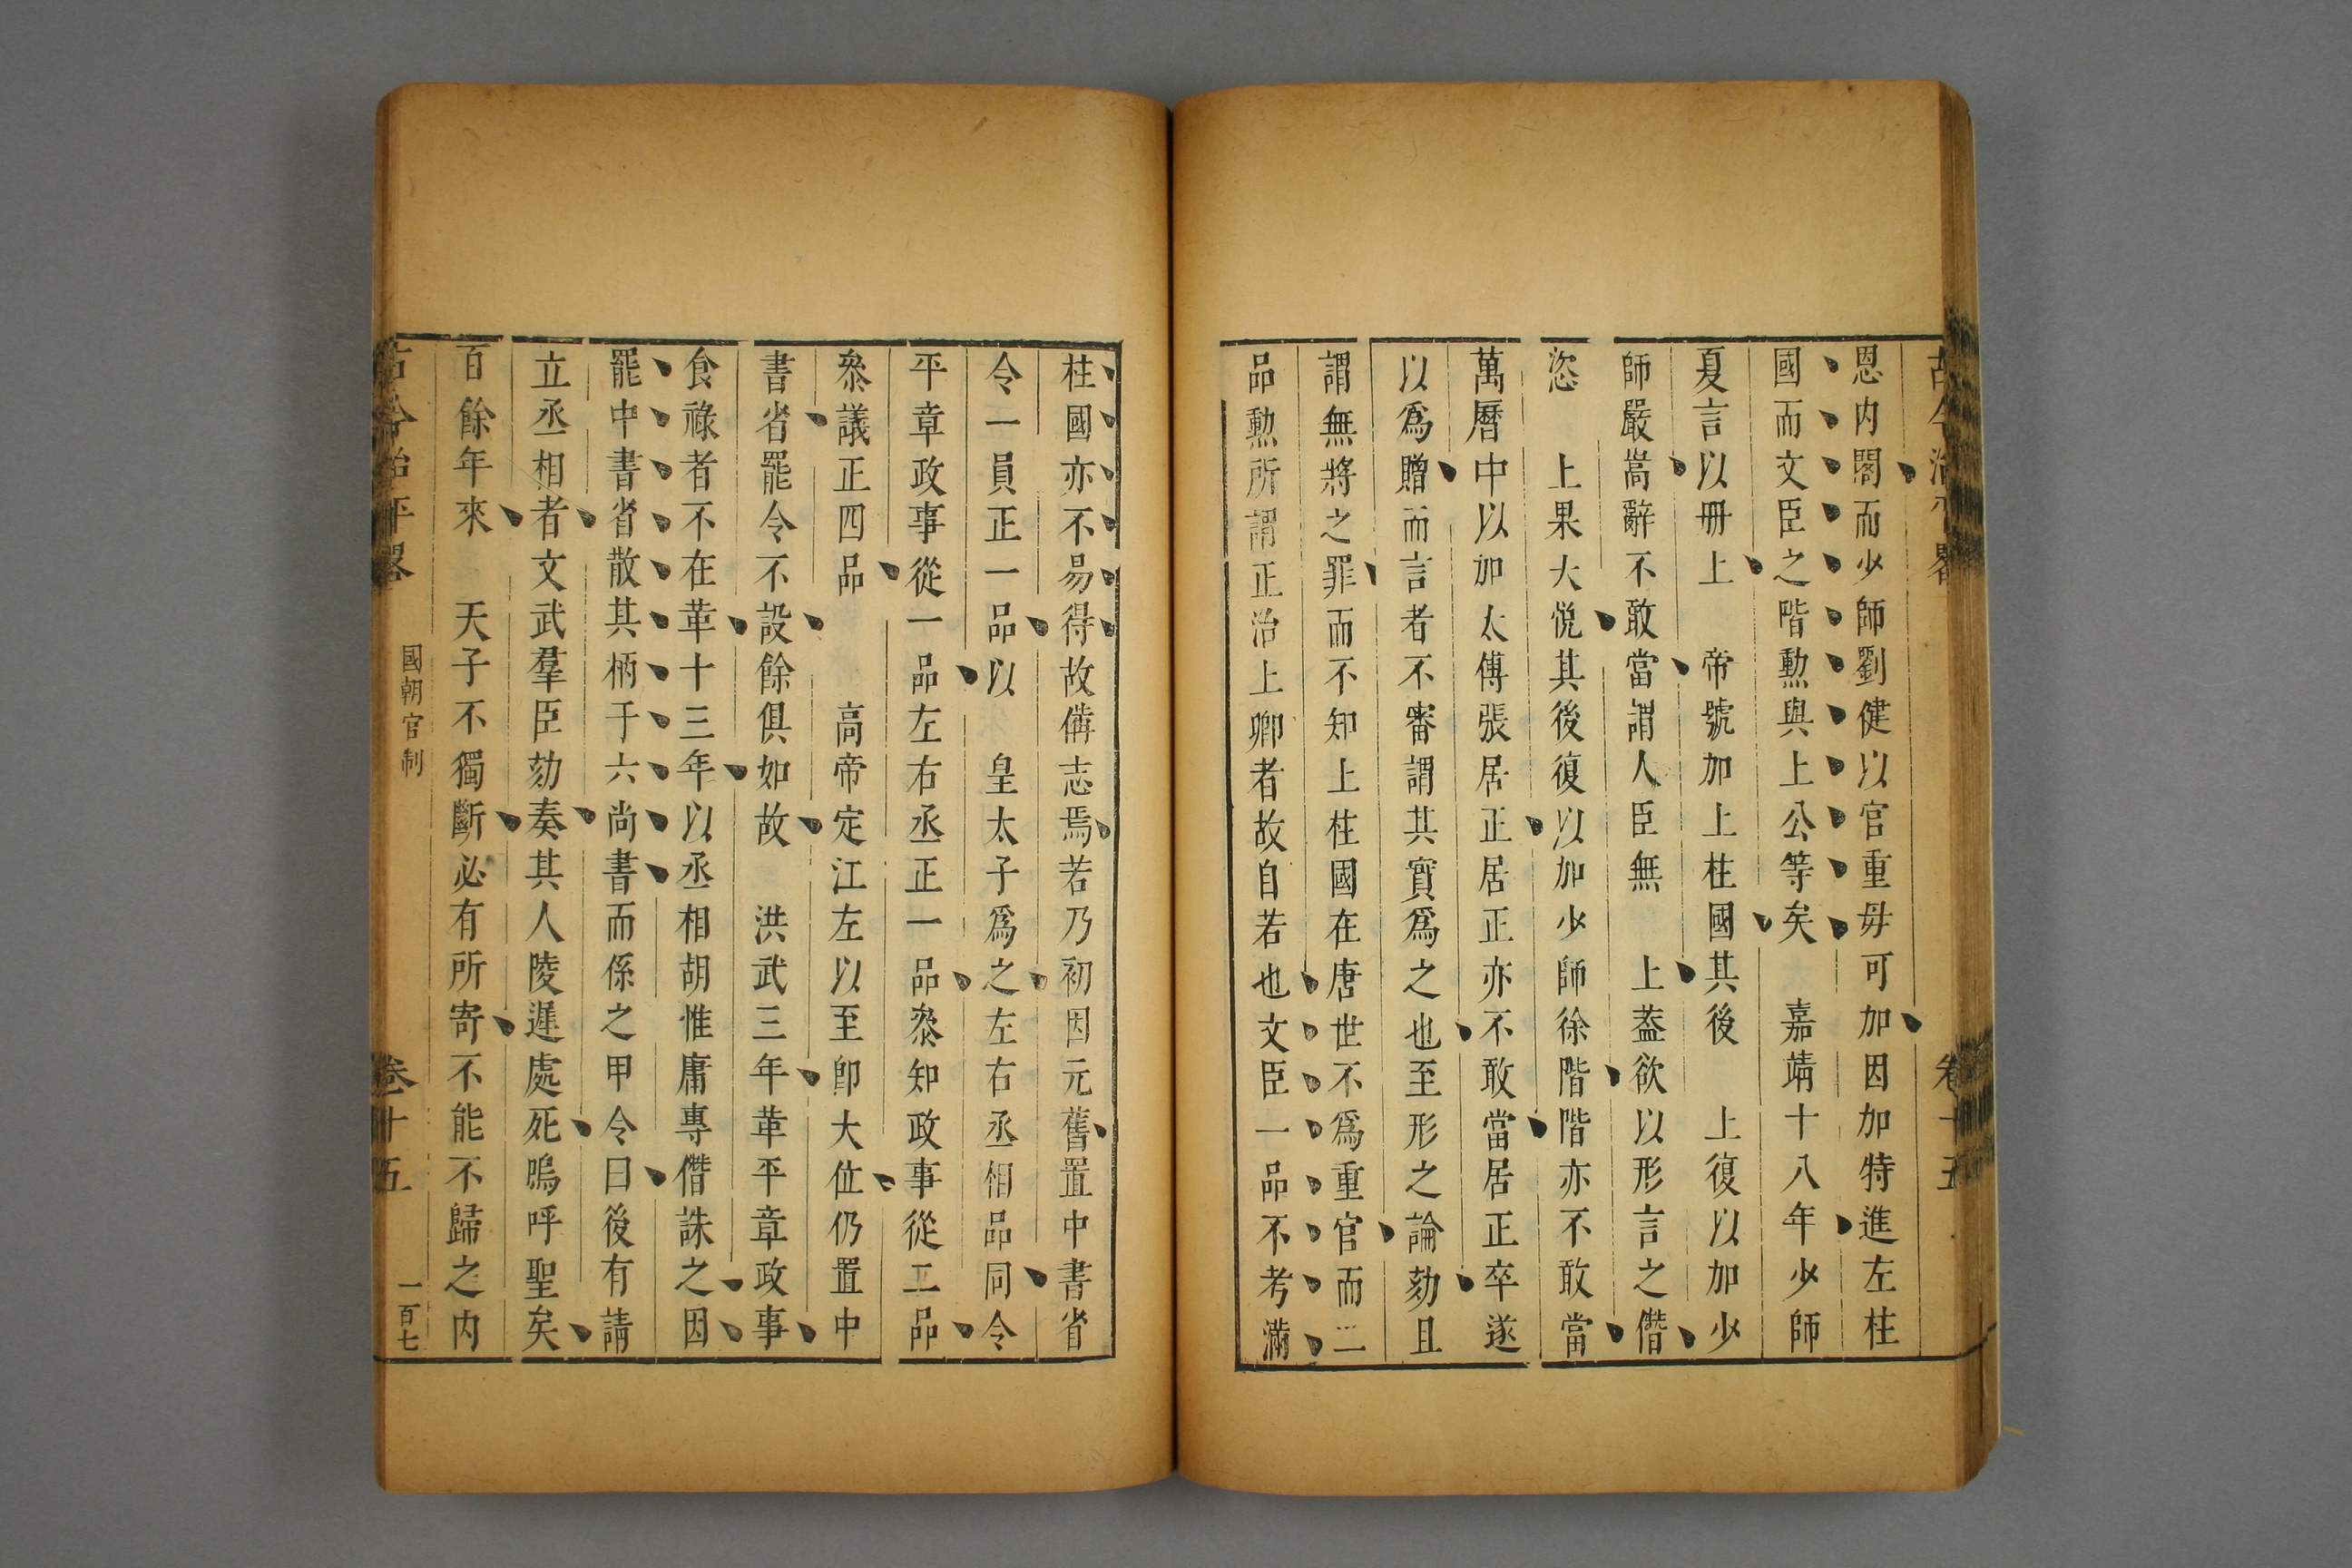 古今治平畧 卷十五
恩内閣而少師劉健以官重毋可加因加特進左柱
國而文臣之階勲與上公等矣 嘉靖十八年少師
夏言以册上 帝號加上柱國其後 上復以加少
師嚴嵩辭不敢當謂人臣無 上葢欲以形言之僭
恣 上果大悅其後復以加少師徐階階亦不敢當
萬曆中以加太傅張居正居正亦不敢當居正卒遂
以爲贈而言者不審謂其實爲之也至形之論劾且
謂無將之罪而不知上柱國在唐世不爲重官而二
品勲所謂正治上卿者故自若也文臣一品不考滿
柱國亦不易得故僃志焉若乃初因元舊置中書省
令一員正一品以 皇太子爲之左右丞相品同令
平章政事從一品左右丞正一品叅知政事從二品
叅議正四品 高帝定江左以至卽大位仍置中
書省罷令不設餘俱如故 洪武三年革平章政事
食祿者不在革十三年以丞相胡惟庸專僭誅之因
罷中書省散其柄于六尚書而係之甲令曰後有請
立丞相者文武羣臣劾奏其人陵遲處死嗚呼聖矣
百餘年來 天子不獨斷必有所寄不能不歸之内
古今治平畧 國朝官制 卷十五 一百七